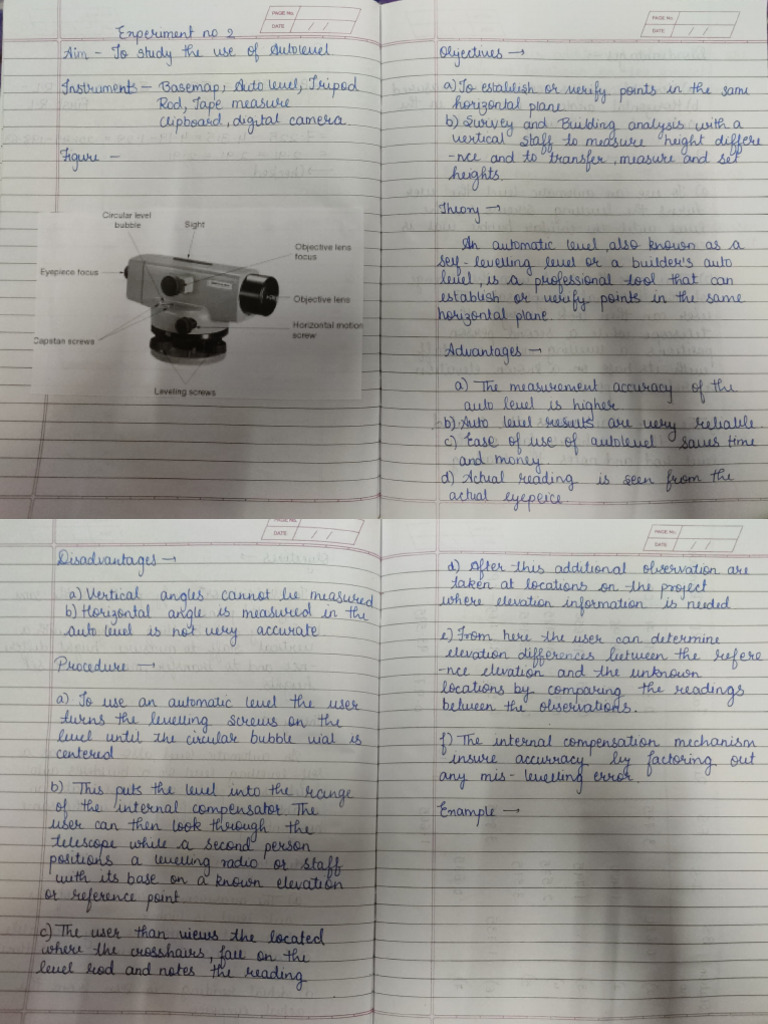 PAGE No.
DATE / /
Experiment no 2
Aim - To study the use of Autolevel
Instruments - Basemap, Auto level, Tripod
Rod, Tape measure
Clipboard, digital camera
Figure -
Circular level
bubble
Sight
Objective lens
focus
Eyepiece focus
Objective lens
Horizontal motion
screw
Capstan screws
Leveling screws
PAGE No.
DATE / /
Objectives →
a) To establish or verify points in the same
horizontal plane
b) Survey and Building analysis with a
vertical staff to measure height differe
-nce and to transfer, measure and set
heights.
Theory →
An automatic level, also known as a
self-levelling level or a builder's auto
level, is a professional tool that can
establish or verify points in the same
horizontal plane.
Advantages →
a) The measurement accuracy of the
auto level is higher
b) Auto level results are very reliable
c) Ease of use of autolevel saves time
and money
d) Actual reading is seen from the
actual eyepeice
PAGE No.
DATE / /
Disadvantages →
a) Vertical angles cannot be measured
b) Horizontal angle is measured in the
auto level is not very accurate
Procedure →
a) To use an automatic level the user
turns the levelling screws on the
level until the circular bubble vial is
centered
b) This puts the level into the range
of the internal compensator. The
user can then look through the
telescope while a second person
positions a levelling radio or staff
with its base on a known elevation
or reference point
c) The user than views the located
where the crosshairs, fall on the
level rod and notes the reading
PAGE No.
DATE / /
d) After this additional observation are
taken at locations on the project
where elevation information is needed
e) From here the user can determine
elevation differences between the refere
-nce elevation and the unknown
locations by comparing the readings
between the observations.
f) The internal compensation mechanism
insure accurracy by factoring out
any mis-levelling error.
Example →